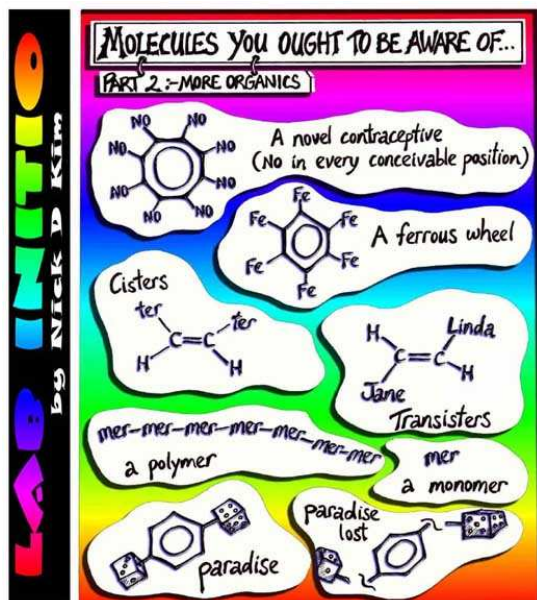 LAB INITIO
by Nick D Kim
MOLECULES YOU OUGHT TO BE AWARE OF...
PART 2:-MORE ORGANICS
NO NO
NO NO
NO NO
NO NO
A novel contraceptive
(NO in every conceivable position)
Fe Fe
Fe Fe
Fe Fe
A ferrous wheel
Cisters
ter ter
C=C
H H
H Linda
C=C
Jane H
Transisters
mer-mer-mer-mer-mer-mer-mer
a polymer
mer
a monomer
paradise
paradise
lost